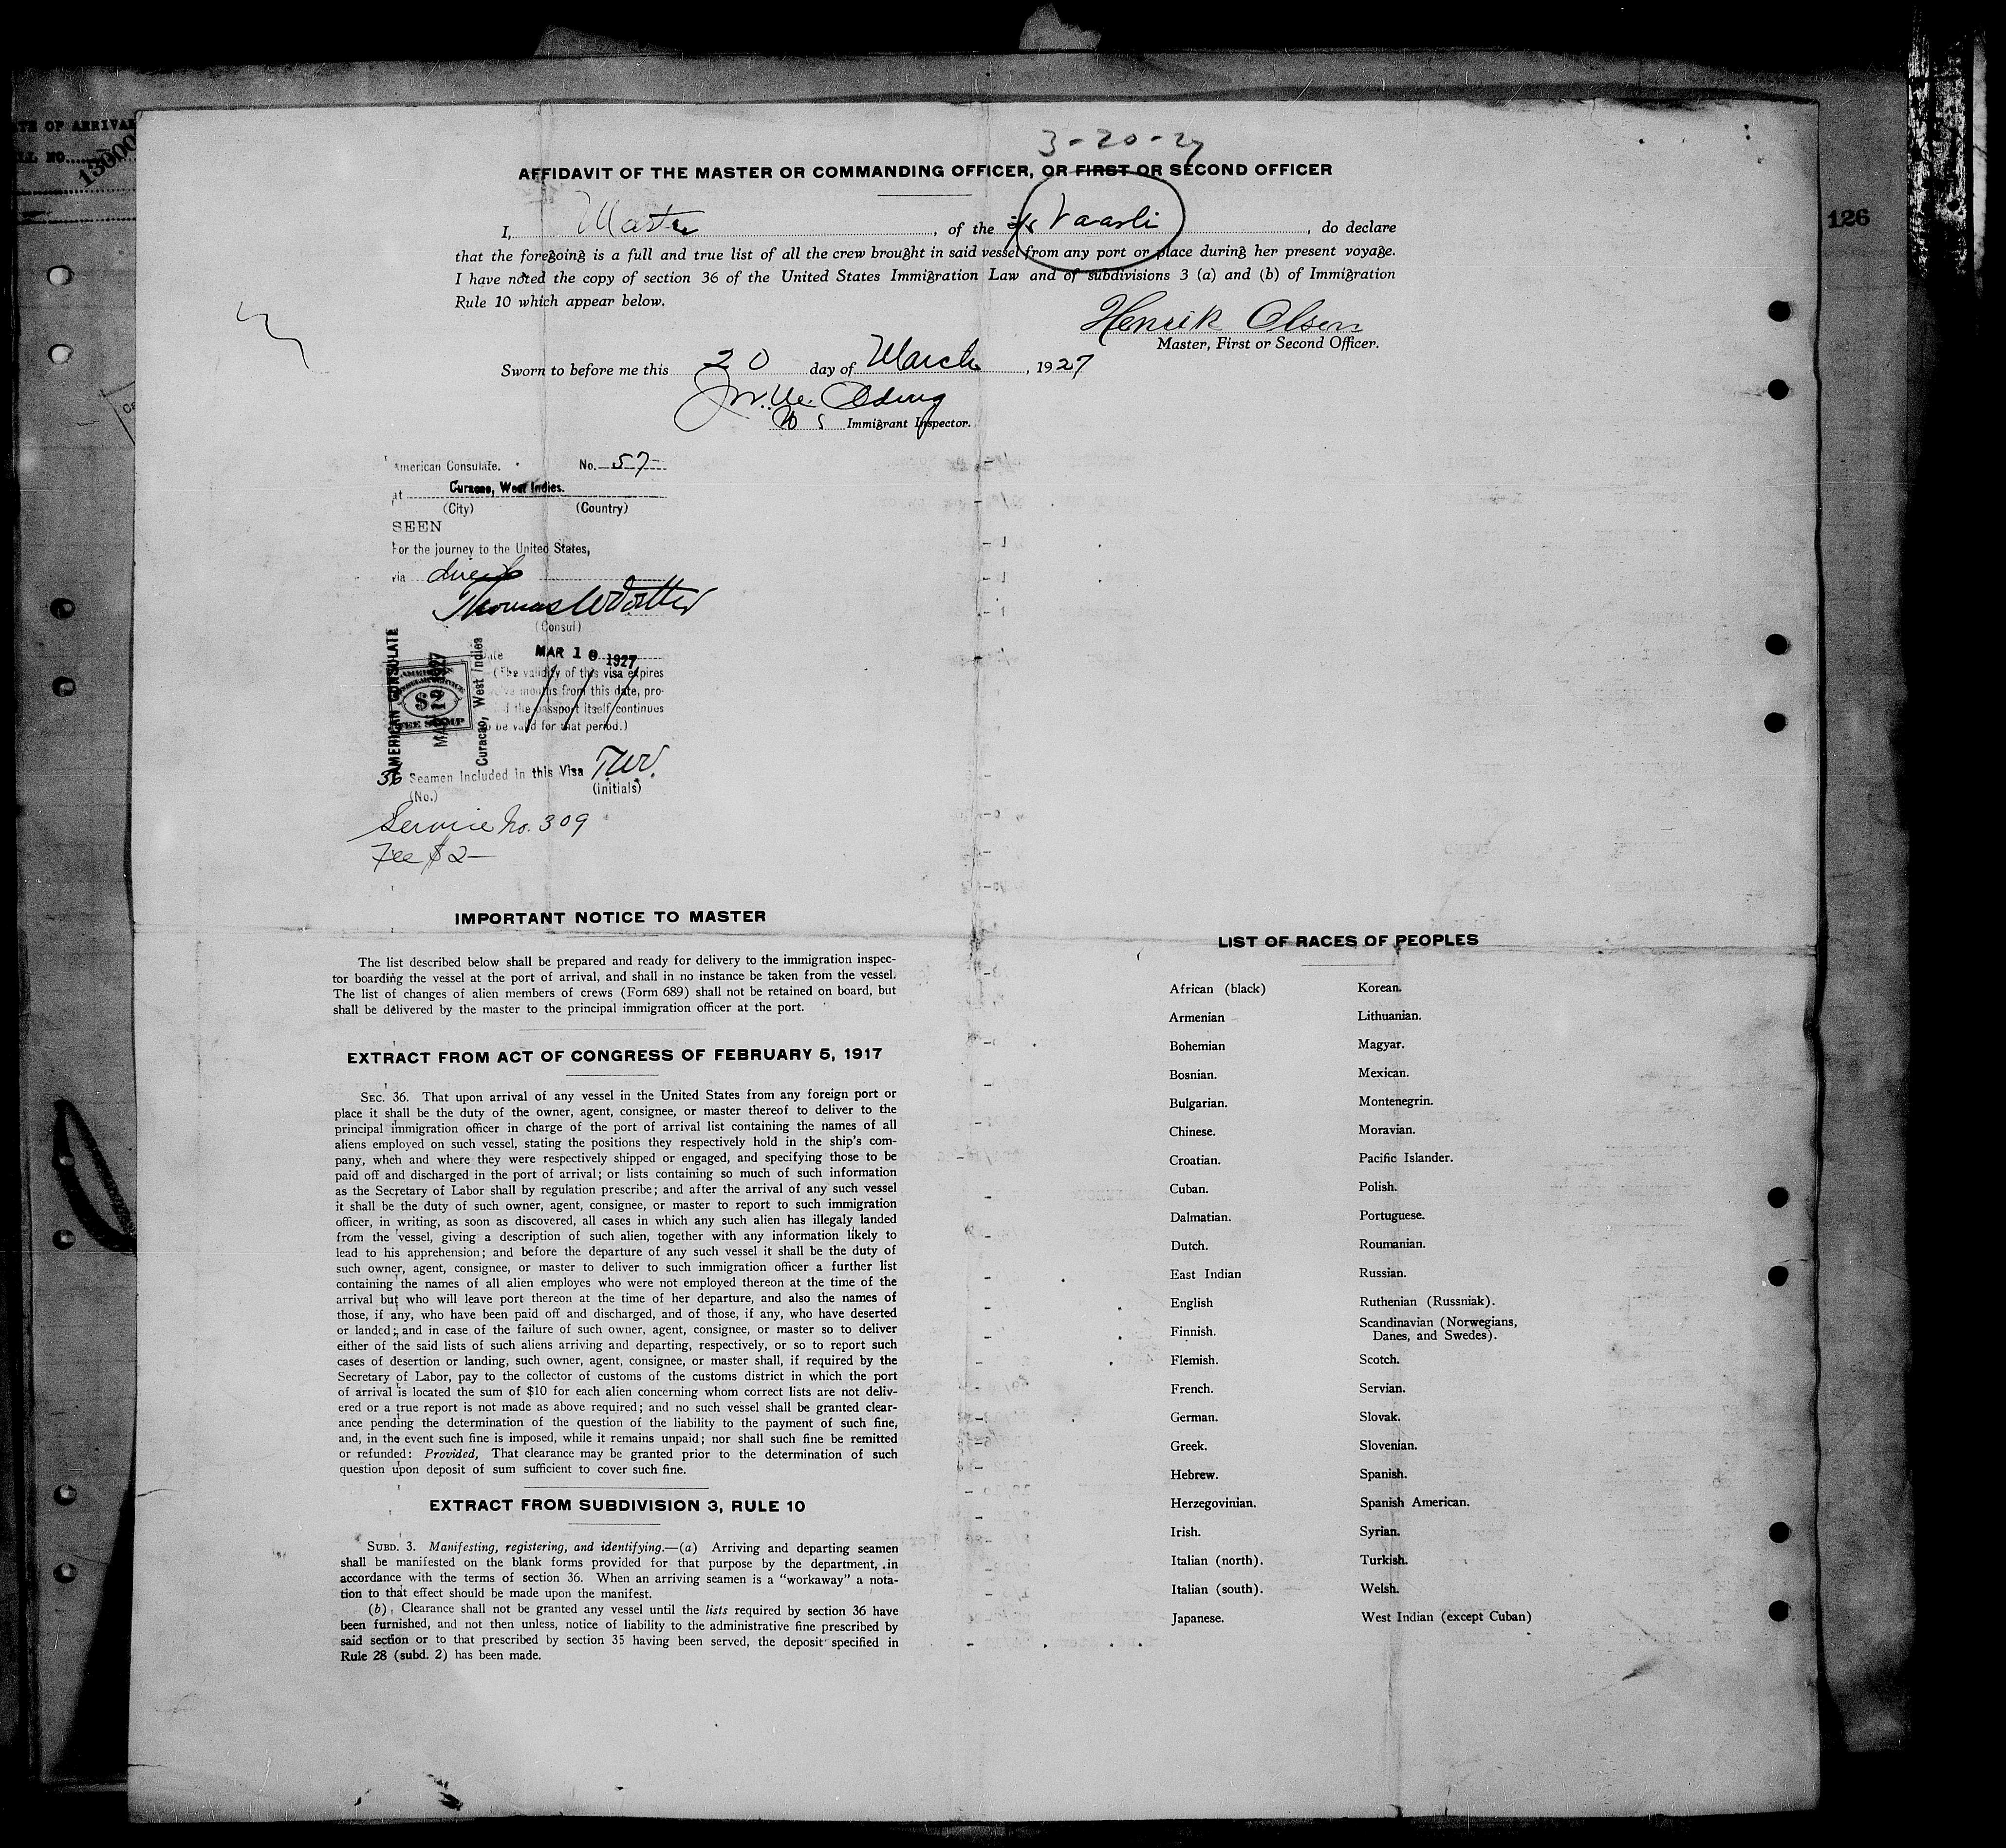 TE OF ARRIVAL
LL NO.
13000
126
3-20-27
AFFIDAVIT OF THE MASTER OR COMMANDING OFFICER, OR FIRST OR SECOND OFFICER
I, Master, of the S/S Vaarli, do declare
that the foregoing is a full and true list of all the crew brought in said vessel from any port or place during her present voyage.
I have noted the copy of section 36 of the United States Immigration Law and of subdivisions 3 (a) and (b) of Immigration
Rule 10 which appear below.
Henrik Olsen
Master, First or Second Officer.
Sworn to before me this 20 day of March, 1927
Immigrant Inspector.
American Consulate. No. 57
at Curacao, West Indies.
(City) (Country)
SEEN
For the journey to the United States,
via direct
Thomas W
(Consul)
Date MAR 10 1927
(The validity of this visa expires
months from this date, pro-
d the passport itself continues
o be valid for that period.)
AMERICAN CONSULATE
MAR 1927
Curacao, West Indies
AMERICAN
$2
FEE STAMP
36 Seamen Included in this Visa T.W.V.
(No.) (initials)
Service No. 309
Fee $2—
IMPORTANT NOTICE TO MASTER
The list described below shall be prepared and ready for delivery to the immigration inspec-
tor boarding the vessel at the port of arrival, and shall in no instance be taken from the vessel.
The list of changes of alien members of crews (Form 689) shall not be retained on board, but
shall be delivered by the master to the principal immigration officer at the port.
EXTRACT FROM ACT OF CONGRESS OF FEBRUARY 5, 1917
SEC. 36. That upon arrival of any vessel in the United States from any foreign port or
place it shall be the duty of the owner, agent, consignee, or master thereof to deliver to the
principal immigration officer in charge of the port of arrival list containing the names of all
aliens employed on such vessel, stating the positions they respectively hold in the ship's com-
pany, when and where they were respectively shipped or engaged, and specifying those to be
paid off and discharged in the port of arrival; or lists containing so much of such information
as the Secretary of Labor shall by regulation prescribe; and after the arrival of any such vessel
it shall be the duty of such owner, agent, consignee, or master to report to such immigration
officer, in writing, as soon as discovered, all cases in which any such alien has illegaly landed
from the vessel, giving a description of such alien, together with any information likely to
lead to his apprehension; and before the departure of any such vessel it shall be the duty of
such owner, agent, consignee, or master to deliver to such immigration officer a further list
containing the names of all alien employes who were not employed thereon at the time of the
arrival but who will leave port thereon at the time of her departure, and also the names of
those, if any, who have been paid off and discharged, and of those, if any, who have deserted
or landed; and in case of the failure of such owner, agent, consignee, or master so to deliver
either of the said lists of such aliens arriving and departing, respectively, or so to report such
cases of desertion or landing, such owner, agent, consignee, or master shall, if required by the
Secretary of Labor, pay to the collector of customs of the customs district in which the port
of arrival is located the sum of $10 for each alien concerning whom correct lists are not deliv-
ered or a true report is not made as above required; and no such vessel shall be granted clear-
ance pending the determination of the question of the liability to the payment of such fine,
and, in the event such fine is imposed, while it remains unpaid; nor shall such fine be remitted
or refunded: Provided, That clearance may be granted prior to the determination of such
question upon deposit of sum sufficient to cover such fine.
EXTRACT FROM SUBDIVISION 3, RULE 10
SUBD. 3. Manifesting, registering, and identifying.—(a) Arriving and departing seamen
shall be manifested on the blank forms provided for that purpose by the department, in
accordance with the terms of section 36. When an arriving seamen is a "workaway" a nota-
tion to that effect should be made upon the manifest.
(b) Clearance shall not be granted any vessel until the lists required by section 36 have
been furnished, and not then unless, notice of liability to the administrative fine prescribed by
said section or to that prescribed by section 35 having been served, the deposit specified in
Rule 28 (subd. 2) has been made.
LIST OF RACES OF PEOPLES
African (black) Korean.
Armenian Lithuanian.
Bohemian Magyar.
Bosnian. Mexican.
Bulgarian. Montenegrin.
Chinese. Moravian.
Croatian. Pacific Islander.
Cuban. Polish.
Dalmatian. Portuguese.
Dutch. Roumanian.
East Indian Russian.
English Ruthenian (Russniak).
Finnish. Scandinavian (Norwegians,
Danes, and Swedes).
Flemish. Scotch.
French. Servian.
German. Slovak.
Greek. Slovenian.
Hebrew. Spanish.
Herzegovinian. Spanish American.
Irish. Syrian.
Italian (north). Turkish.
Italian (south). Welsh.
Japanese. West Indian (except Cuban)